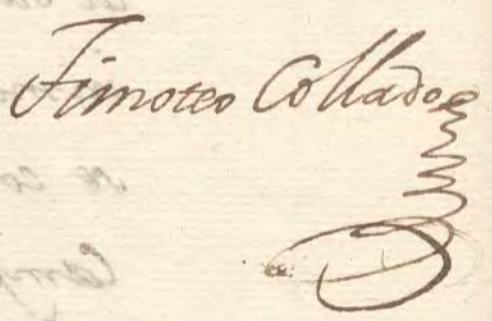 Timoteo Collado